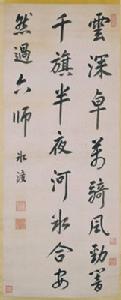 雲深卓萬騎風勁響
千旗半夜河冰合安
然過六師 冰渡